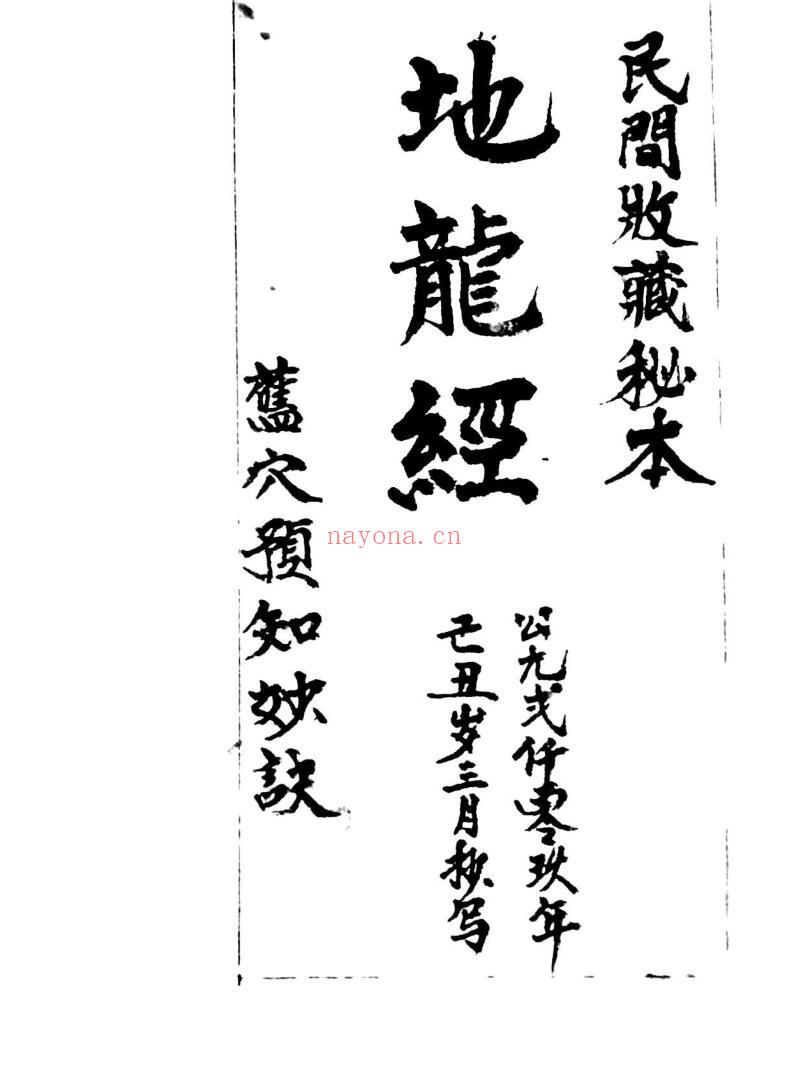 民間收藏秘本
地龍經
公元弍仟零玖年
己丑岁三月抄写
舊穴預知妙訣
nayona.cn